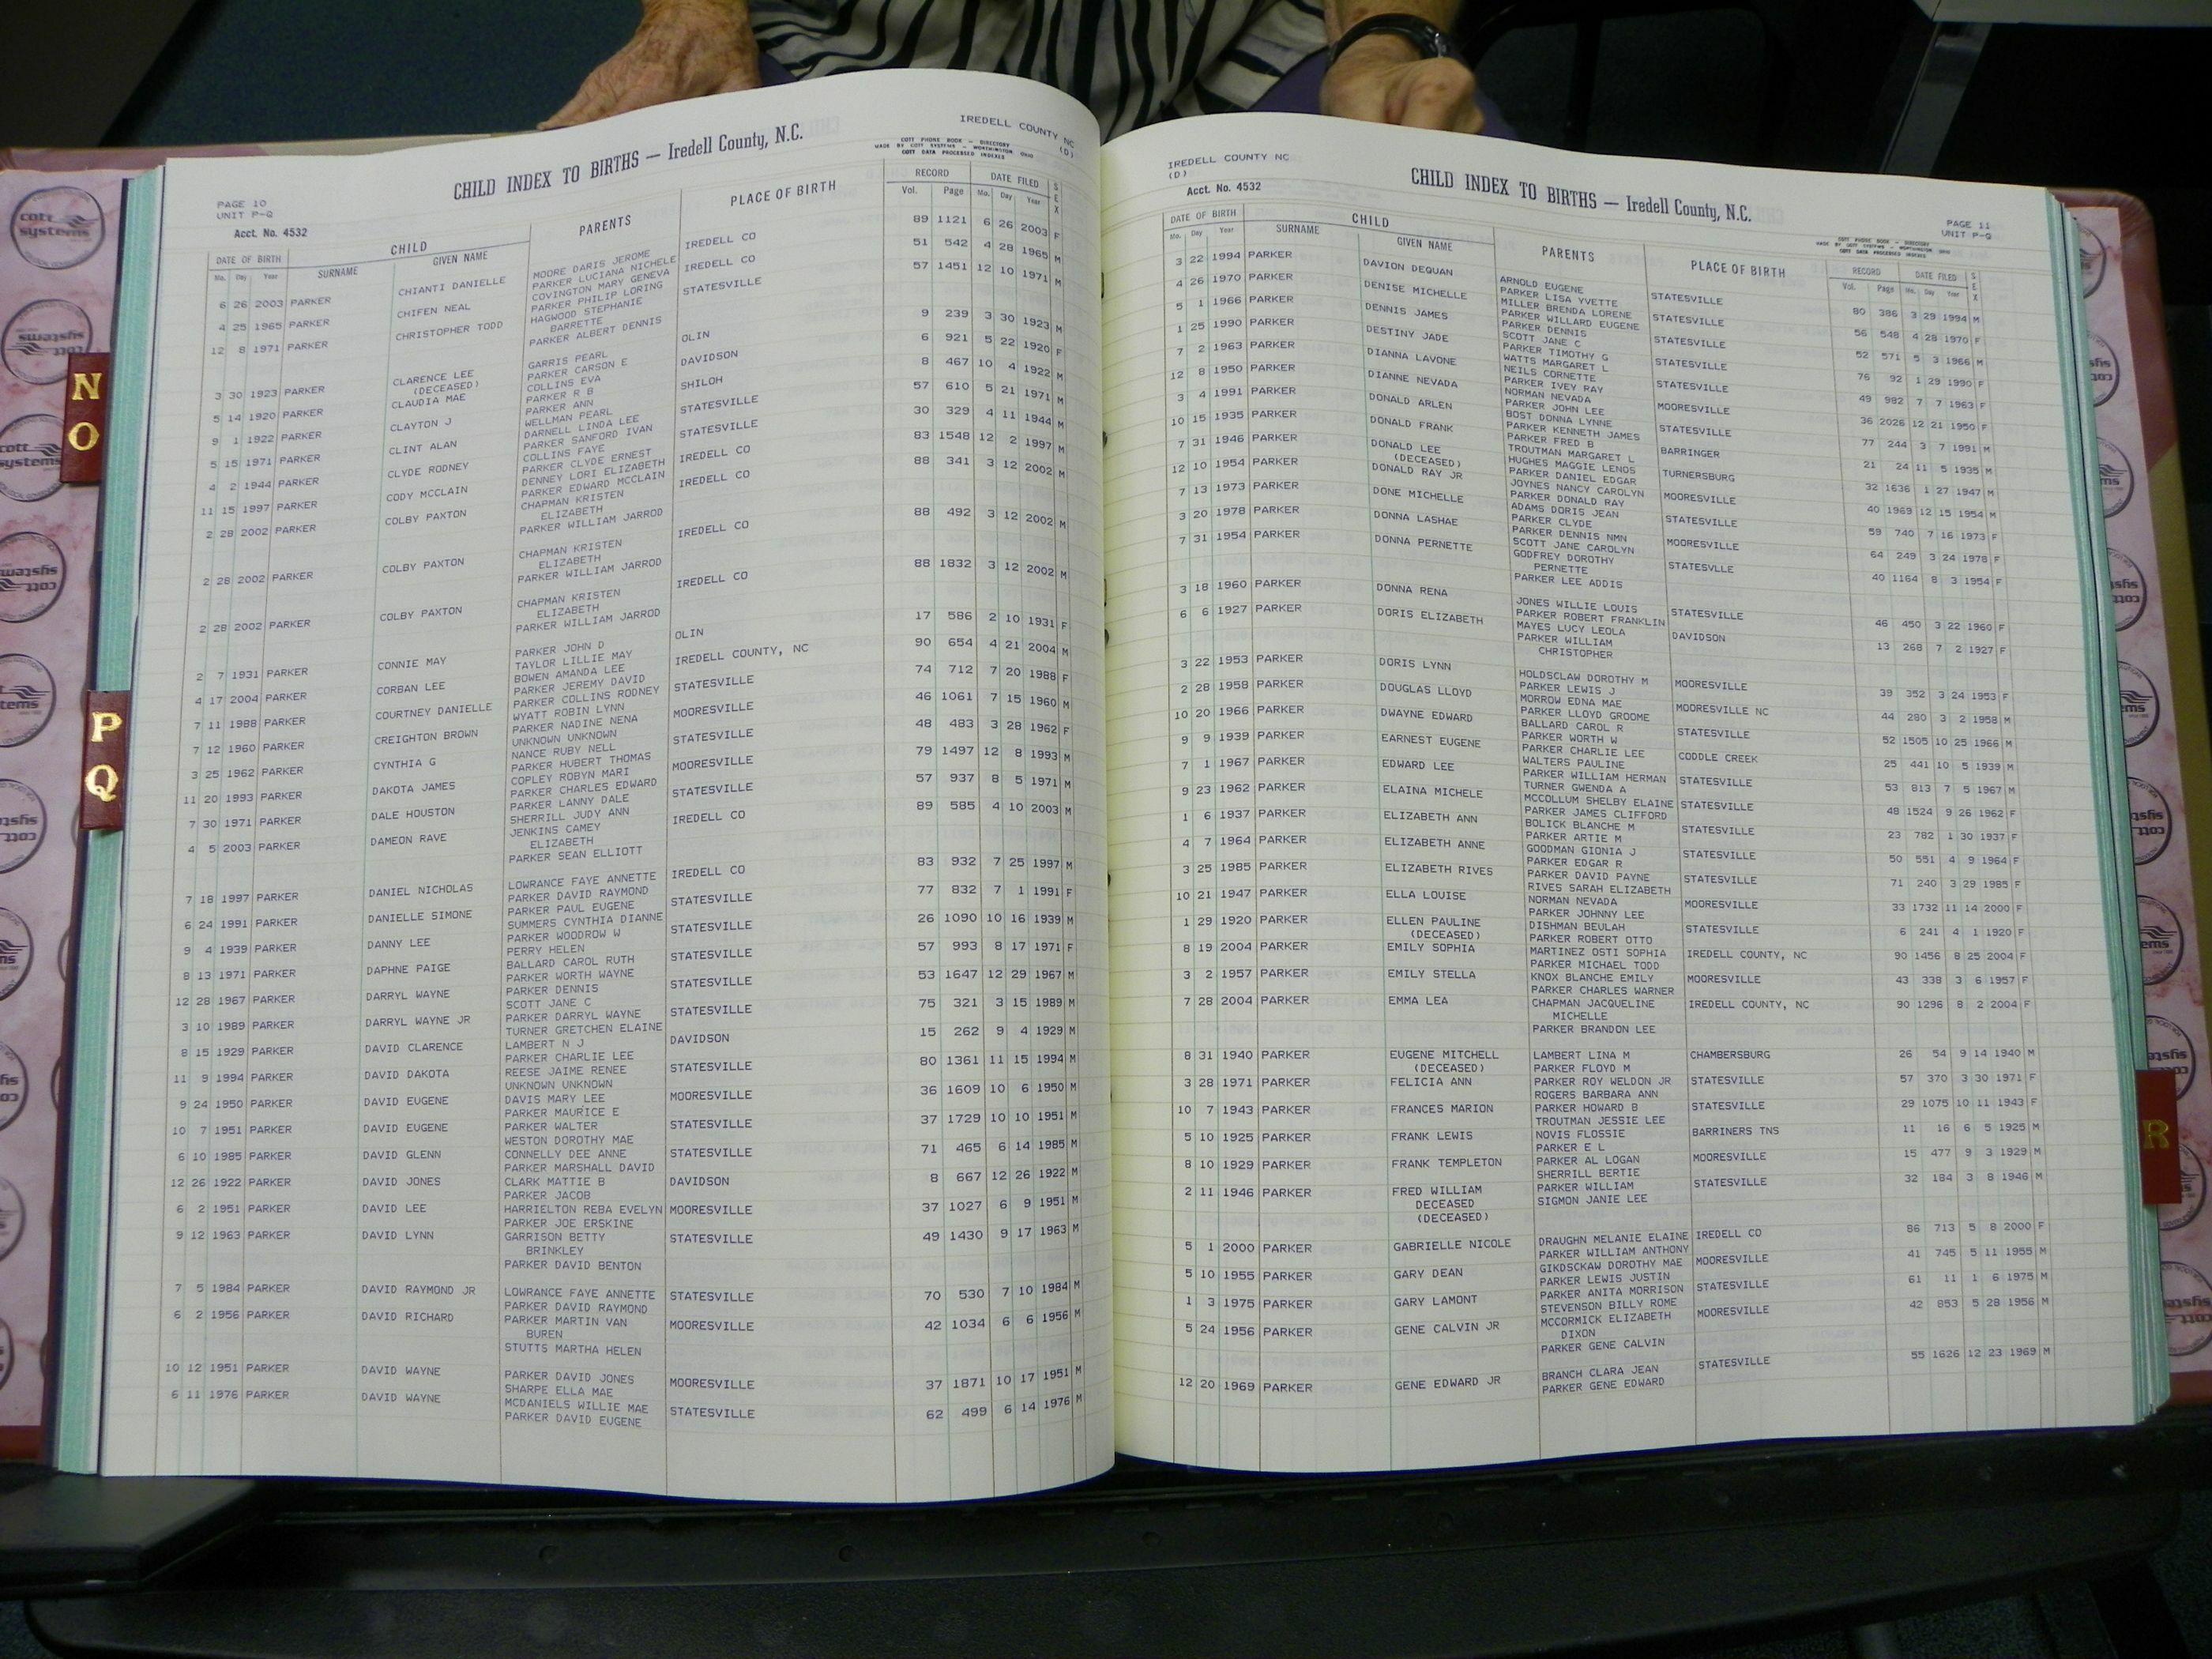 CHILD INDEX TO BIRTHS — Iredell County, N.C.
IREDELL COUNTY NC
(D)
COTT PHONE BOOK — DIRECTORY
MADE BY COTT SYSTEMS — WORTHINGTON OHIO
COTT DATA PROCESSED INDEXES
PAGE 10
UNIT P-Q
Acct. No. 4532
DATE OF BIRTH CHILD PARENTS PLACE OF BIRTH RECORD DATE FILED SEX
Mo. Day Year SURNAME GIVEN NAME Vol. Page Mo. Day Year
6 26 2003 PARKER CHIANTI DANIELLE MOORE DARIS JEROME IREDELL CO 89 1121 6 26 2003 F
PARKER LUCIANA NICHELE
4 25 1965 PARKER CHIFEN NEAL COVINGTON MARY GENEVA IREDELL CO 51 542 4 28 1965 M
PARKER PHILIP LORING
12 8 1971 PARKER CHRISTOPHER TODD HAGWOOD STEPHANIE STATESVILLE 57 1451 12 10 1971 M
BARRETTE
PARKER ALBERT DENNIS
3 30 1923 PARKER CLARENCE LEE GARRIS PEARL OLIN 9 239 3 30 1923 M
(DECEASED) PARKER CARSON E
5 14 1920 PARKER CLAUDIA MAE COLLINS EVA DAVIDSON 6 921 5 22 1920 F
PARKER R B
9 1 1922 PARKER CLAYTON J PARKER ANN SHILOH 8 467 10 4 1922 M
WELLMAN PEARL
5 15 1971 PARKER CLINT ALAN DARNELL LINDA LEE STATESVILLE 57 610 5 21 1971 M
PARKER SANFORD IVAN
4 2 1944 PARKER CLYDE RODNEY COLLINS FAYE STATESVILLE 30 329 4 11 1944 M
PARKER CLYDE ERNEST
11 15 1997 PARKER CODY MCCLAIN DENNEY LORI ELIZABETH IREDELL CO 83 1548 12 2 1997 M
PARKER EDWARD MCCLAIN
2 28 2002 PARKER COLBY PAXTON CHAPMAN KRISTEN IREDELL CO 88 341 3 12 2002 M
ELIZABETH
PARKER WILLIAM JARROD
2 28 2002 PARKER COLBY PAXTON CHAPMAN KRISTEN IREDELL CO 88 492 3 12 2002 M
ELIZABETH
PARKER WILLIAM JARROD
2 28 2002 PARKER COLBY PAXTON CHAPMAN KRISTEN IREDELL CO 88 1832 3 12 2002 M
ELIZABETH
PARKER WILLIAM JARROD
2 7 1931 PARKER CONNIE MAY PARKER JOHN D OLIN 17 586 2 10 1931 F
TAYLOR LILLIE MAY
4 17 2004 PARKER CORBAN LEE BOWEN AMANDA LEE IREDELL COUNTY, NC 90 654 4 21 2004 M
PARKER JEREMY DAVID
7 11 1988 PARKER COURTNEY DANIELLE PARKER COLLINS RODNEY STATESVILLE 74 712 7 20 1988 F
WYATT ROBIN LYNN
7 12 1960 PARKER CREIGHTON BROWN PARKER NADINE NENA MOORESVILLE 46 1061 7 15 1960 M
UNKNOWN UNKNOWN
3 25 1962 PARKER CYNTHIA G NANCE RUBY NELL STATESVILLE 48 483 3 28 1962 F
PARKER HUBERT THOMAS
11 20 1993 PARKER DAKOTA JAMES COPLEY ROBYN MARI MOORESVILLE 79 1497 12 8 1993 M
PARKER CHARLES EDWARD
7 30 1971 PARKER DALE HOUSTON PARKER LANNY DALE STATESVILLE 57 937 8 5 1971 M
SHERRILL JUDY ANN
4 5 2003 PARKER DAMEON RAVE JENKINS CAMEY IREDELL CO 89 585 4 10 2003 M
ELIZABETH
PARKER SEAN ELLIOTT
7 18 1997 PARKER DANIEL NICHOLAS LOWRANCE FAYE ANNETTE IREDELL CO 83 932 7 25 1997 M
PARKER DAVID RAYMOND
6 24 1991 PARKER DANIELLE SIMONE PARKER PAUL EUGENE STATESVILLE 77 832 7 1 1991 F
SUMMERS CYNTHIA DIANNE
9 4 1939 PARKER DANNY LEE PARKER WOODROW W STATESVILLE 26 1090 10 16 1939 M
PERRY HELEN
8 13 1971 PARKER DAPHNE PAIGE BALLARD CAROL RUTH STATESVILLE 57 993 8 17 1971 F
PARKER WORTH WAYNE
12 28 1967 PARKER DARRYL WAYNE PARKER DENNIS STATESVILLE 53 1647 12 29 1967 M
SCOTT JANE C
3 10 1989 PARKER DARRYL WAYNE JR PARKER DARRYL WAYNE STATESVILLE 75 321 3 15 1989 M
TURNER GRETCHEN ELAINE
8 15 1929 PARKER DAVID CLARENCE LAMBERT N J DAVIDSON 15 262 9 4 1929 M
PARKER CHARLIE LEE
11 9 1994 PARKER DAVID DAKOTA REESE JAIME RENEE STATESVILLE 80 1361 11 15 1994 M
UNKNOWN UNKNOWN
9 24 1950 PARKER DAVID EUGENE DAVIS MARY LEE MOORESVILLE 36 1609 10 6 1950 M
PARKER MAURICE E
10 7 1951 PARKER DAVID EUGENE PARKER WALTER STATESVILLE 37 1729 10 10 1951 M
WESTON DOROTHY MAE
6 10 1985 PARKER DAVID GLENN CONNELLY DEE ANNE STATESVILLE 71 465 6 14 1985 M
PARKER MARSHALL DAVID
12 26 1922 PARKER DAVID JONES CLARK MATTIE B DAVIDSON 8 667 12 26 1922 M
PARKER JACOB
6 2 1951 PARKER DAVID LEE HARRIELTON REBA EVELYN MOORESVILLE 37 1027 6 9 1951 M
PARKER JOE ERSKINE
9 12 1963 PARKER DAVID LYNN GARRISON BETTY STATESVILLE 49 1430 9 17 1963 M
BRINKLEY
PARKER DAVID BENTON
7 5 1984 PARKER DAVID RAYMOND JR LOWRANCE FAYE ANNETTE STATESVILLE 70 530 7 10 1984 M
PARKER DAVID RAYMOND
6 2 1956 PARKER DAVID RICHARD PARKER MARTIN VAN MOORESVILLE 42 1034 6 6 1956 M
BUREN
STUTTS MARTHA HELEN
10 12 1951 PARKER DAVID WAYNE PARKER DAVID JONES MOORESVILLE 37 1871 10 17 1951 M
SHARPE ELLA MAE
6 11 1976 PARKER DAVID WAYNE MCDANIELS WILLIE MAE STATESVILLE 62 499 6 14 1976 M
PARKER DAVID EUGENE
IREDELL COUNTY NC
(D)
Acct. No. 4532
CHILD INDEX TO BIRTHS — Iredell County, N.C.
PAGE 11
UNIT P-Q
DATE OF BIRTH CHILD PARENTS PLACE OF BIRTH RECORD DATE FILED SEX
Mo. Day Year SURNAME GIVEN NAME Vol. Page Mo. Day Year
3 22 1994 PARKER DAVION DEQUAN ARNOLD EUGENE STATESVILLE 80 386 3 29 1994 M
PARKER LISA YVETTE
4 26 1970 PARKER DENISE MICHELLE MILLER BRENDA LORENE STATESVILLE 56 548 4 28 1970 F
PARKER WILLARD EUGENE
5 1 1966 PARKER DENNIS JAMES PARKER DENNIS STATESVILLE 52 571 5 3 1966 M
SCOTT JANE C
1 25 1990 PARKER DESTINY JADE PARKER TIMOTHY G STATESVILLE 76 92 1 29 1990 F
WATTS MARGARET L
7 2 1963 PARKER DIANNA LAVONE NEILS CORNETTE MOORESVILLE 49 982 7 7 1963 F
PARKER IVEY RAY
12 8 1950 PARKER DIANNE NEVADA NORMAN NEVADA STATESVILLE 36 2026 12 21 1950 F
PARKER JOHN LEE
3 4 1991 PARKER DONALD ARLEN BOST DONNA LYNNE BARRINGER 77 244 3 7 1991 M
PARKER KENNETH JAMES
10 15 1935 PARKER DONALD FRANK PARKER FRED B TURNERSBURG 21 24 11 5 1935 M
TROUTMAN MARGARET L
7 31 1946 PARKER DONALD LEE HUGHES MAGGIE LENOS MOORESVILLE 32 1636 1 27 1947 M
(DECEASED) PARKER DANIEL EDGAR
12 10 1954 PARKER DONALD RAY JR JOYNES NANCY CAROLYN STATESVILLE 40 1969 12 15 1954 M
PARKER DONALD RAY
7 13 1973 PARKER DONE MICHELLE ADAMS DORIS JEAN MOORESVILLE 59 740 7 16 1973 F
PARKER CLYDE
3 20 1978 PARKER DONNA LASHAE PARKER DENNIS NMN STATESVLLE 64 249 3 24 1978 F
SCOTT JANE CAROLYN
7 31 1954 PARKER DONNA PERNETTE GODFREY DOROTHY 40 1164 8 3 1954 F
PERNETTE
PARKER LEE ADDIS
3 18 1960 PARKER DONNA RENA JONES WILLIE LOUIS STATESVILLE 46 450 3 22 1960 F
PARKER ROBERT FRANKLIN
6 6 1927 PARKER DORIS ELIZABETH MAYES LUCY LEOLA DAVIDSON 13 268 7 2 1927 F
PARKER WILLIAM
CHRISTOPHER
3 22 1953 PARKER DORIS LYNN HOLDSCLAW DOROTHY M MOORESVILLE 39 352 3 24 1953 F
PARKER LEWIS J
2 28 1958 PARKER DOUGLAS LLOYD MORROW EDNA MAE MOORESVILLE NC 44 280 3 2 1958 M
PARKER LLOYD GROOME
10 20 1966 PARKER DWAYNE EDWARD BALLARD CAROL R STATESVILLE 52 1505 10 25 1966 M
PARKER WORTH W
9 9 1939 PARKER EARNEST EUGENE PARKER CHARLIE LEE CODDLE CREEK 25 441 10 5 1939 M
WALTERS PAULINE
7 1 1967 PARKER EDWARD LEE PARKER WILLIAM HERMAN STATESVILLE 53 813 7 5 1967 M
TURNER GWENDA A
9 23 1962 PARKER ELAINA MICHELE MCCOLLUM SHELBY ELAINE STATESVILLE 48 1524 9 26 1962 F
PARKER JAMES CLIFFORD
1 6 1937 PARKER ELIZABETH ANN BOLICK BLANCHE M STATESVILLE 23 782 1 30 1937 F
PARKER ARTIE M
4 7 1964 PARKER ELIZABETH ANNE GOODMAN GIONIA J STATESVILLE 50 551 4 9 1964 F
PARKER EDGAR R
3 25 1985 PARKER ELIZABETH RIVES PARKER DAVID PAYNE STATESVILLE 71 240 3 29 1985 F
RIVES SARAH ELIZABETH
10 21 1947 PARKER ELLA LOUISE NORMAN NEVADA MOORESVILLE 33 1732 11 14 2000 F
PARKER JOHNNY LEE
1 29 1920 PARKER ELLEN PAULINE DISHMAN BEULAH STATESVILLE 6 241 4 1 1920 F
(DECEASED) PARKER ROBERT OTTO
8 19 2004 PARKER EMILY SOPHIA MARTINEZ OSTI SOPHIA IREDELL COUNTY, NC 90 1456 8 25 2004 F
PARKER MICHAEL TODD
3 2 1957 PARKER EMILY STELLA KNOX BLANCHE EMILY MOORESVILLE 43 338 3 6 1957 F
PARKER CHARLES WARNER
7 28 2004 PARKER EMMA LEA CHAPMAN JACQUELINE IREDELL COUNTY, NC 90 1296 8 2 2004 F
MICHELLE
PARKER BRANDON LEE
8 31 1940 PARKER EUGENE MITCHELL LAMBERT LINA M CHAMBERSBURG 26 54 9 14 1940 M
(DECEASED) PARKER FLOYD M
3 28 1971 PARKER FELICIA ANN PARKER ROY WELDON JR STATESVILLE 57 370 3 30 1971 F
ROGERS BARBARA ANN
10 7 1943 PARKER FRANCES MARION PARKER HOWARD B STATESVILLE 29 1075 10 11 1943 F
TROUTMAN JESSIE LEE
5 10 1925 PARKER FRANK LEWIS NOVIS FLOSSIE BARRINERS TNS 11 16 6 5 1925 M
PARKER E L
8 10 1929 PARKER FRANK TEMPLETON PARKER AL LOGAN MOORESVILLE 15 477 9 3 1929 M
SHERRILL BERTIE
2 11 1946 PARKER FRED WILLIAM PARKER WILLIAM STATESVILLE 32 184 3 8 1946 M
DECEASED SIGMON JANIE LEE
(DECEASED)
5 1 2000 PARKER GABRIELLE NICOLE DRAUGHN MELANIE ELAINE IREDELL CO 86 713 5 8 2000 F
PARKER WILLIAM ANTHONY
5 10 1955 PARKER GARY DEAN GIKDSCKAW DOROTHY MAE MOORESVILLE 41 745 5 11 1955 M
PARKER LEWIS JUSTIN
1 3 1975 PARKER GARY LAMONT PARKER ANITA MORRISON STATESVILLE 61 11 1 6 1975 M
STEVENSON BILLY ROME
5 24 1956 PARKER GENE CALVIN JR MCCORMICK ELIZABETH MOORESVILLE 42 853 5 28 1956 M
DIXON
PARKER GENE CALVIN
12 20 1969 PARKER GENE EDWARD JR BRANCH CLARA JEAN STATESVILLE 55 1626 12 23 1969 M
PARKER GENE EDWARD
N
O
P
Q
R
cott
systems